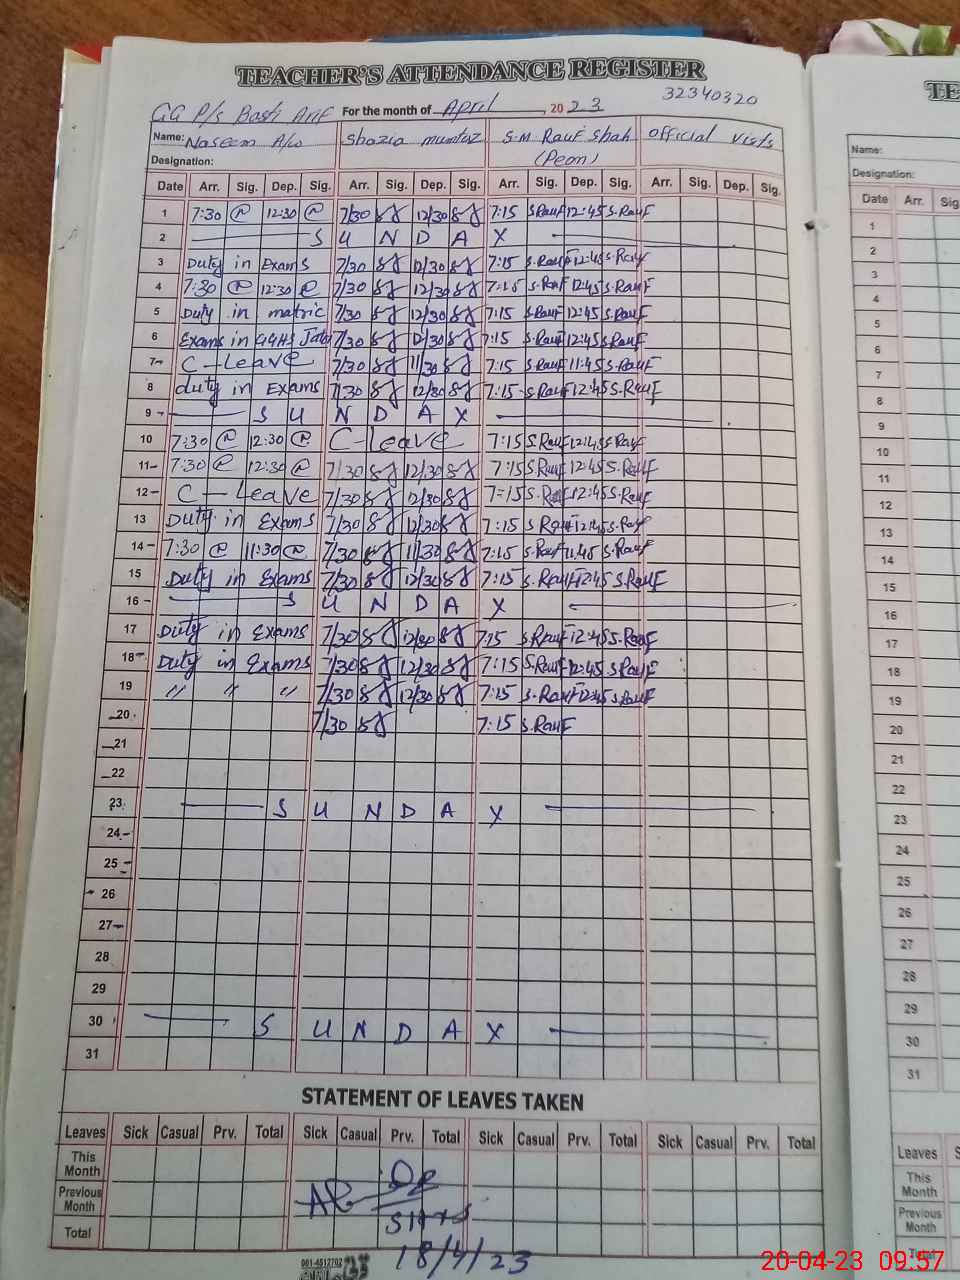 TEACHER'S ATTENDANCE REGISTER
GG P/s Basti Arif For the month of April 2023 32340320
Name: Naseem Shazia mumtaz S.M Rauf Shah official visits
Designation: (Peon)
Date Arr. Sig. Dep. Sig. Arr. Sig. Dep. Sig. Arr. Sig. Dep. Sig. Arr. Sig. Dep. Sig.
1 7:30 12:30 7/30 12/30 7:15 S.Rauf 12:45 S.Rauf
2 S U N D A Y
3 Duty in Exams 7/30 12/30 7:15 S.Rauf 12:45 S.Rauf
4 7:30 12:30 7/30 12/30 7:15 S.Rauf 12:45 S.Rauf
5 Duty in matric 7/30 12/30 7:15 S.Rauf 12:45 S.Rauf
6 Exams in GGHS 7/30 12/30 7:15 S.Rauf 12:45 S.Rauf
7 C-Leave 7/30 11/30 7:15 S.Rauf 11:45 S.Rauf
8 duty in Exams 7/30 12/30 7:15 S.Rauf 12:45 S.Rauf
9 S U N D A Y
10 7:30 12:30 C-Leave 7:15 S.Rauf 12:45 S.Rauf
11 7:30 12:30 7/30 12/30 7:15 S.Rauf 12:45 S.Rauf
12 C-Leave 7/30 12/30 7:15 S.Rauf 12:45 S.Rauf
13 Duty in Exams 7/30 12/30 7:15 S.Rauf 12:45 S.Rauf
14 7:30 11:30 7/30 11/30 7:15 S.Rauf 11:45 S.Rauf
15 Duty in Exams 7/30 12/30 7:15 S.Rauf 12:45 S.Rauf
16 S U N D A Y
17 Duty in Exams 7/30 12/30 7:15 S.Rauf 12:45 S.Rauf
18 Duty in Exams 7/30 12/30 7:15 S.Rauf 12:45 S.Rauf
19 " " " 7/30 12/30 7:15 S.Rauf 12:45 S.Rauf
20 7/30 7:15 S.Rauf
21
22
23 S U N D A Y
24
25
26
27
28
29
30 S U N D A Y
31
STATEMENT OF LEAVES TAKEN
Leaves Sick Casual Prv. Total Sick Casual Prv. Total Sick Casual Prv. Total Sick Casual Prv. Total
This Month
Previous Month
Total
18/4/23
TE
Name:
Designation:
Date Arr. Sig
1
2
3
4
5
6
7
8
9
10
11
12
13
14
15
16
17
18
19
20
21
22
23
24
25
26
27
28
29
30
31
Leaves S
This Month
Previous Month
Total
20-04-23 09:57